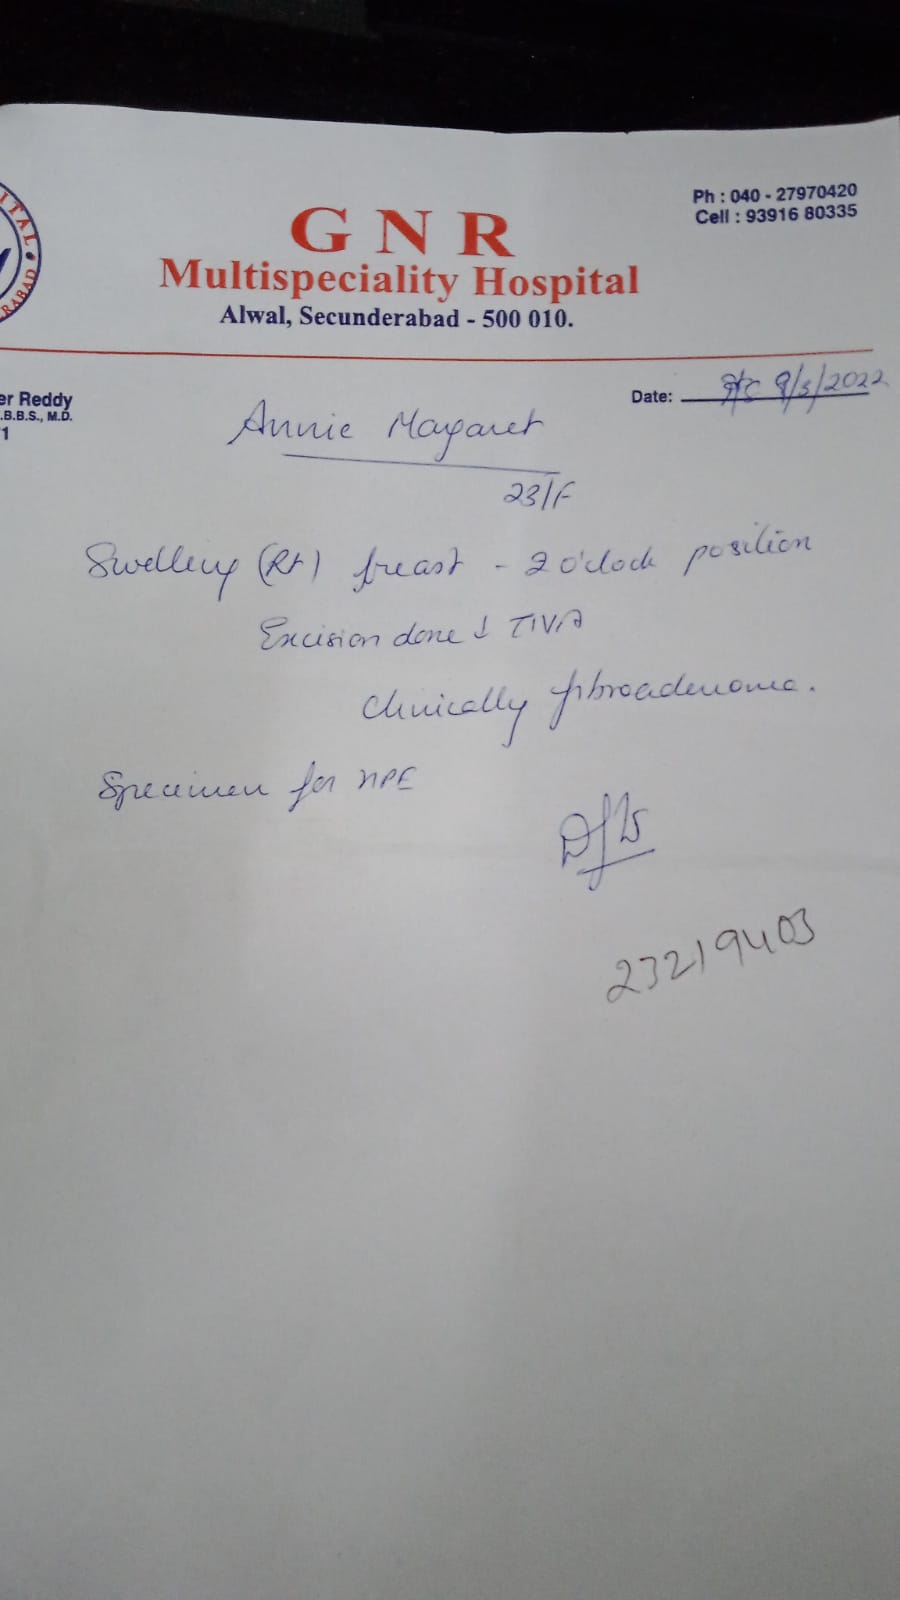 ITAL •
RABAD
Ph : 040 - 27970420
Cell : 93916 80335
G N R
Multispeciality Hospital
Alwal, Secunderabad - 500 010.
er Reddy
.B.B.S., M.D.
1
Date: 9/5/2022
Annie Margaret
23/F
Swelling (Rt) breast - 2 o'clock position
Excision done ↓ TIVA
Clinically fibroadenoma.
Specimen for HPE
23219403